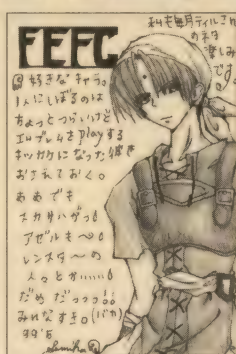 FEFC
私も毎月ティルさん
のネタ
楽しみ
です。
好きなキャラ。
1人にしぼるのは
ちょっとつらいけど
エムブレムをplayする
キッカケになった彼を
おされておく。
ああでも
スカサハがっ
アゼルも〜
レンスターの
人々とかいい
だめだっっっ
みんなすき。(バカ)
99's